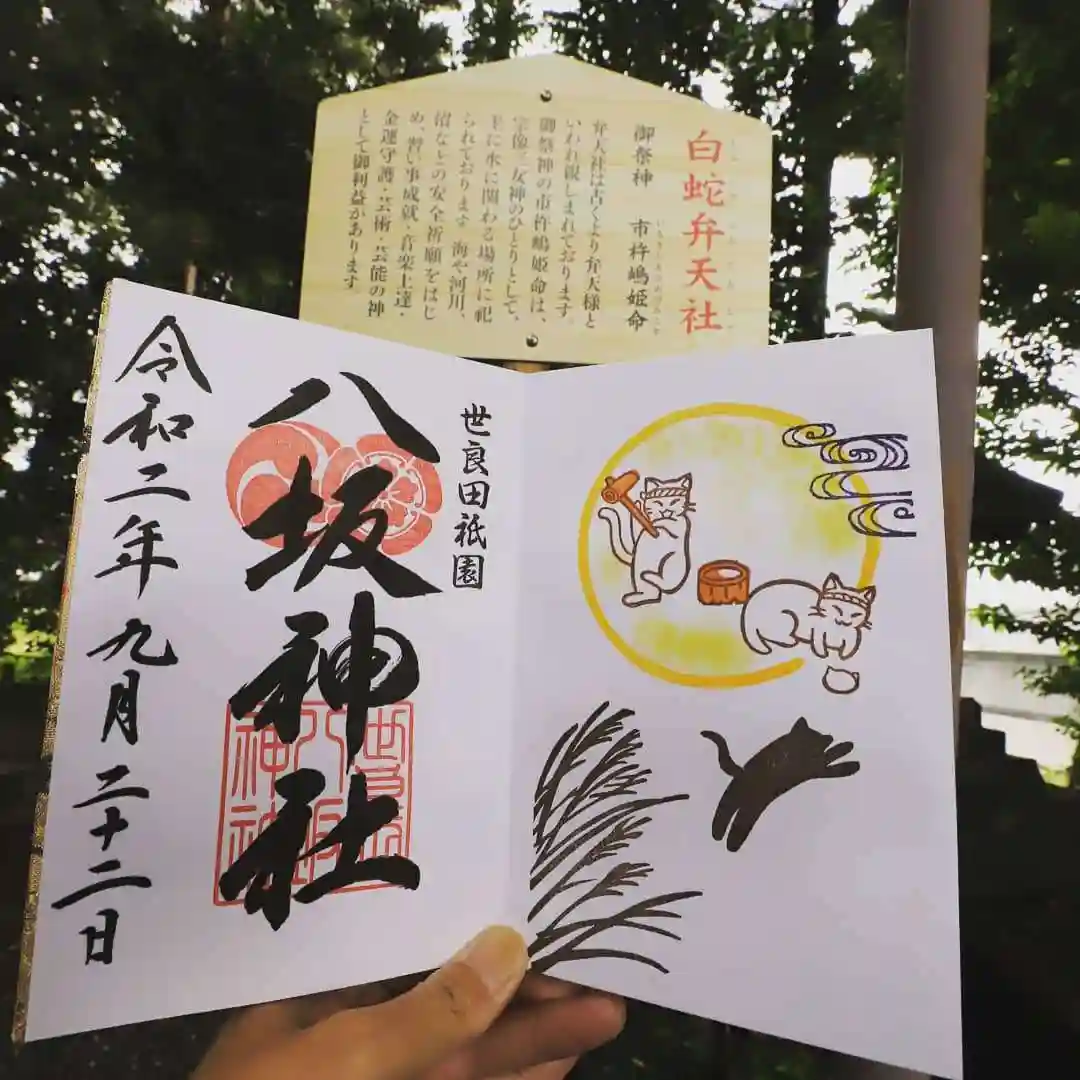 白蛇弁天社
御祭神 市杵嶋姫命
いちきしまひめのみこと
弁天社は古くより弁天様と
いわれ親しまれております。
御祭神の市杵嶋姫命は、
宗像三女神のひとりとして、
主に水に関わる場所に祀
られております。海や河川、
沼などの安全祈願をはじ
め、習い事成就・音楽上達・
金運守護・芸術・芸能の神
として御利益があります。
世良田祇園
八坂神社
令和二年九月二十二日